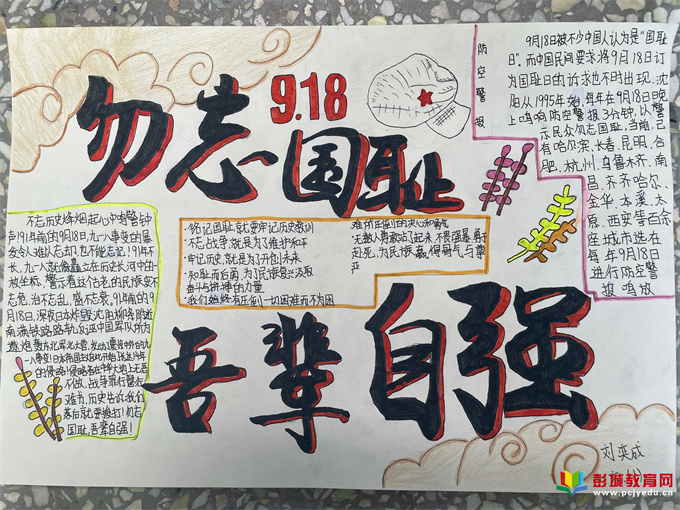 9.18
勿忘国耻
吾辈自强
防空警报
9月18日被不少中国人认为是“国耻
日”,而中国民间要求将9月18日订
为国耻日的诉求也不时出现,沈
阳从1995年始,每年在9月18日晚
上鸣响防空警报3分钟,以警
示民众勿忘国耻,当前,已
有哈尔滨、长春、昆明、合
肥、杭州、乌鲁木齐、南
昌、齐齐哈尔、
金华、本溪、太
原、西安等百余
座城市选在
每年9月18日
进行防空警
报鸣放
不忘历史烽烟起心中鸣警钟
声91年前的9月18日,九一八事变的暴
安令人难以忘却,也不能忘记!91年不
长,九一八就像矗立在历史长河中的
坐标,警示着这个古老的民族安不
忘危,治不忘乱,盛不忘衰,91年前的9
月18日,深夜日本炸毁沈阳柳条湖附近
南满铁路路轨,反诬中国军队所为
· 铭记国耻,就要牢记历史教训
· 不忘战争,就是为了维护和平
· 牢记历史,就是为了开创未来
· 知耻而后勇,为了民族复兴汲取
奋斗与拼搏的力量
· 我们始终有压倒一切困难而不为困
难所压倒的决心和勇气
无数人勇敢站了起来,不畏强暴,勇于
赴死,为民族赢得勇气与尊
严
刘奕成
彭城教育网
www.pcjyedu.cn